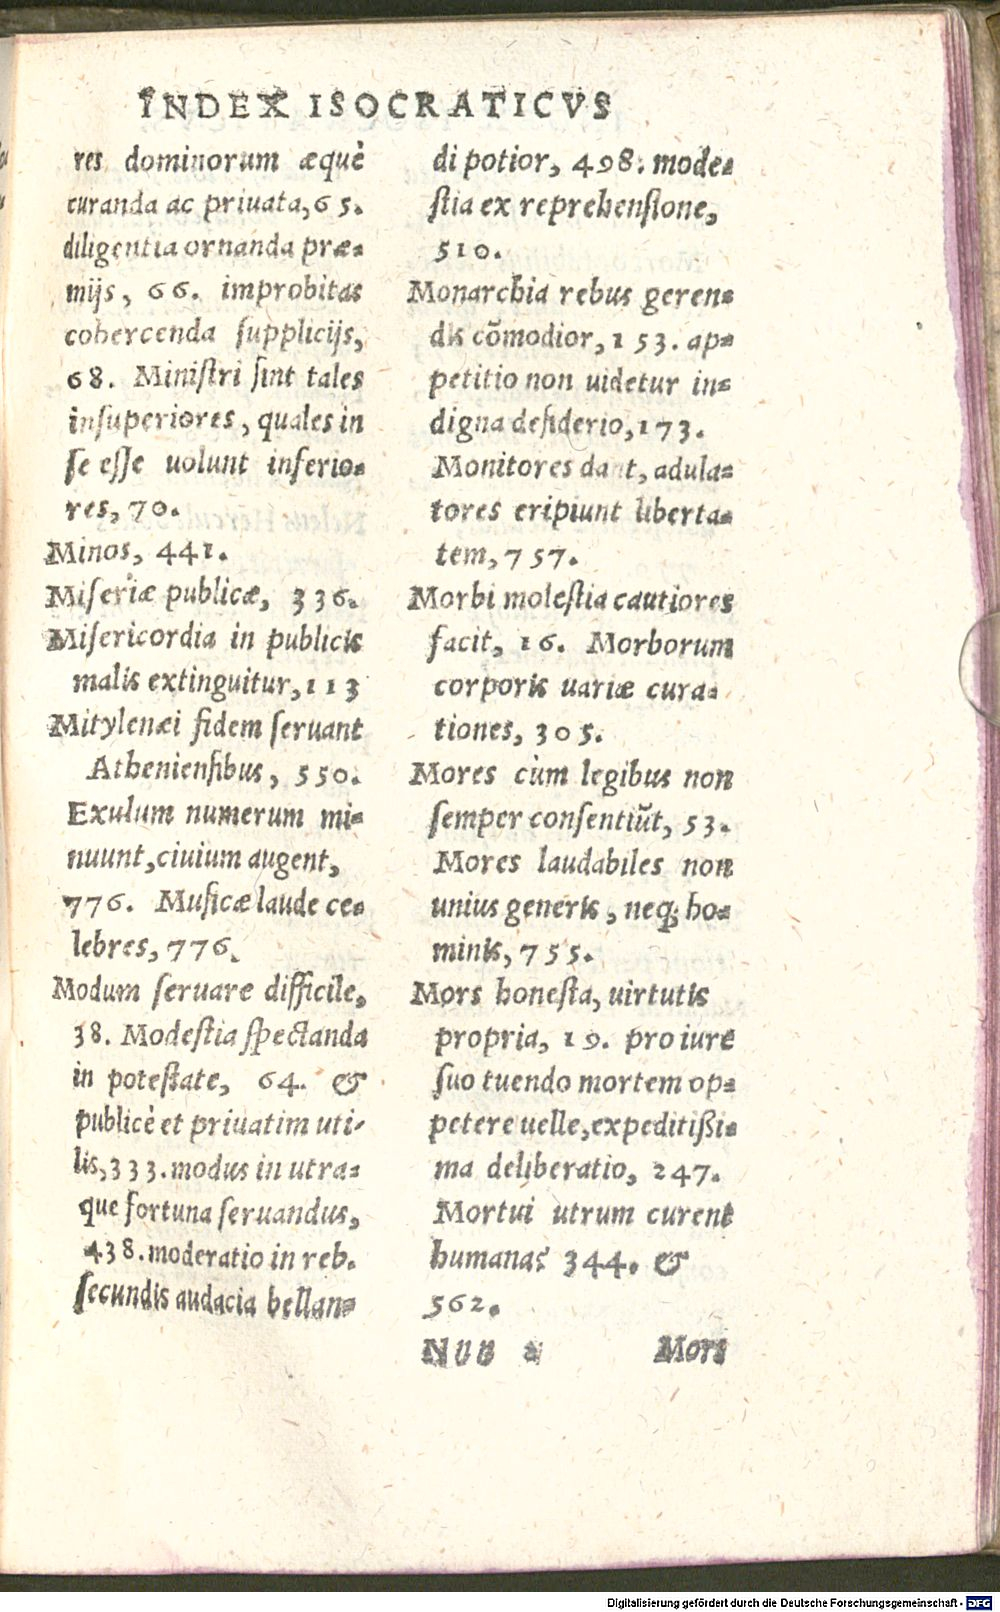 INDEX ISOCRATICVS
res dominorum æquè
curanda ac priuata, 65.
diligentia ornanda præ-
mijs, 66. improbitas
cohercenda supplicijs,
68. Ministri sint tales
in superiores, quales in
se esse uolunt inferio-
res, 70.
Minos, 441.
Miseriæ publicæ, 336.
Misericordia in publicis
malis extinguitur, 113
Mitylenæi fidem seruant
Atheniensibus, 550.
Exulum numerum mi-
nuunt, ciuium augent,
776. Musicæ laude ce-
lebres, 776.
Modum seruare difficile,
38. Modestia spectanda
in potestate, 64. &
publicè et priuatim uti-
lis, 333. modus in utra-
que fortuna seruandus,
438. moderatio in reb.
secundis audacia bellan-
di potior, 498. mode-
stia ex reprehensione,
510.
Monarchia rebus geren-
dis cõmodior, 153. ap-
petitio non uidetur in-
digna desiderio, 173.
Monitores dant, adula-
tores eripiunt liberta-
tem, 757.
Morbi molestia cautiores
facit, 16. Morborum
corporis uariæ cura-
tiones, 305.
Mores cùm legibus non
semper consentiũt, 53.
Mores laudabiles non
unius generis, neq; ho-
minis, 755.
Mors honesta, uirtutis
propria, 19. pro iure
suo tuendo mortem op-
petere uelle, expeditißi-
ma deliberatio, 247.
Mortui utrum curent
humana? 344. &
562.
Nuu Mors
Digitalisierung gefördert durch die Deutsche Forschungsgemeinschaft - DFG